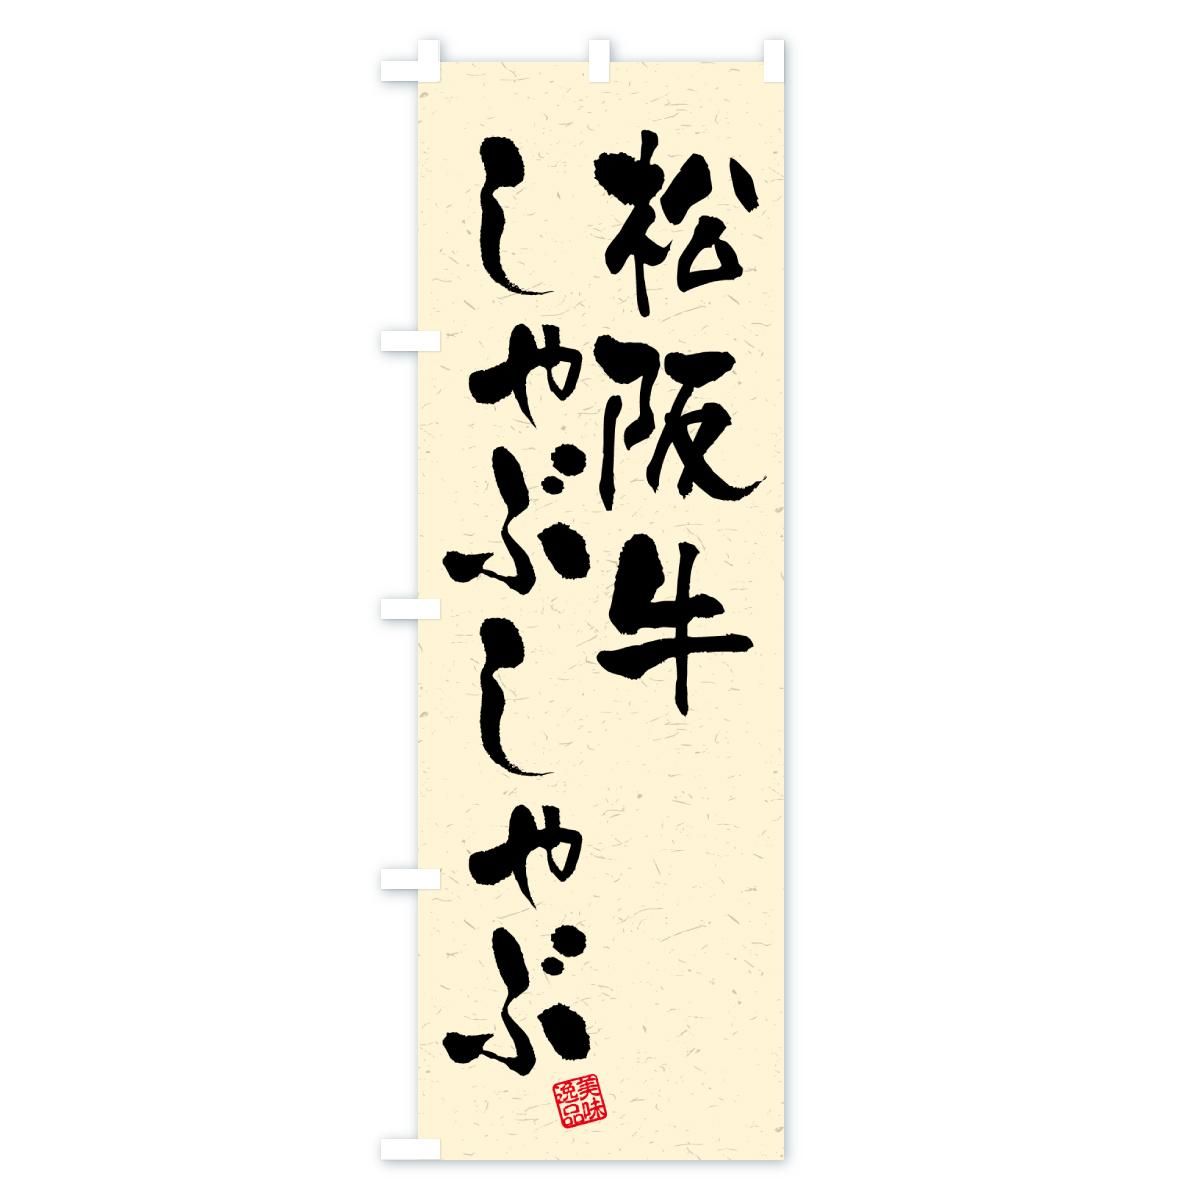 松阪牛
しゃぶしゃぶ
美味
逸品